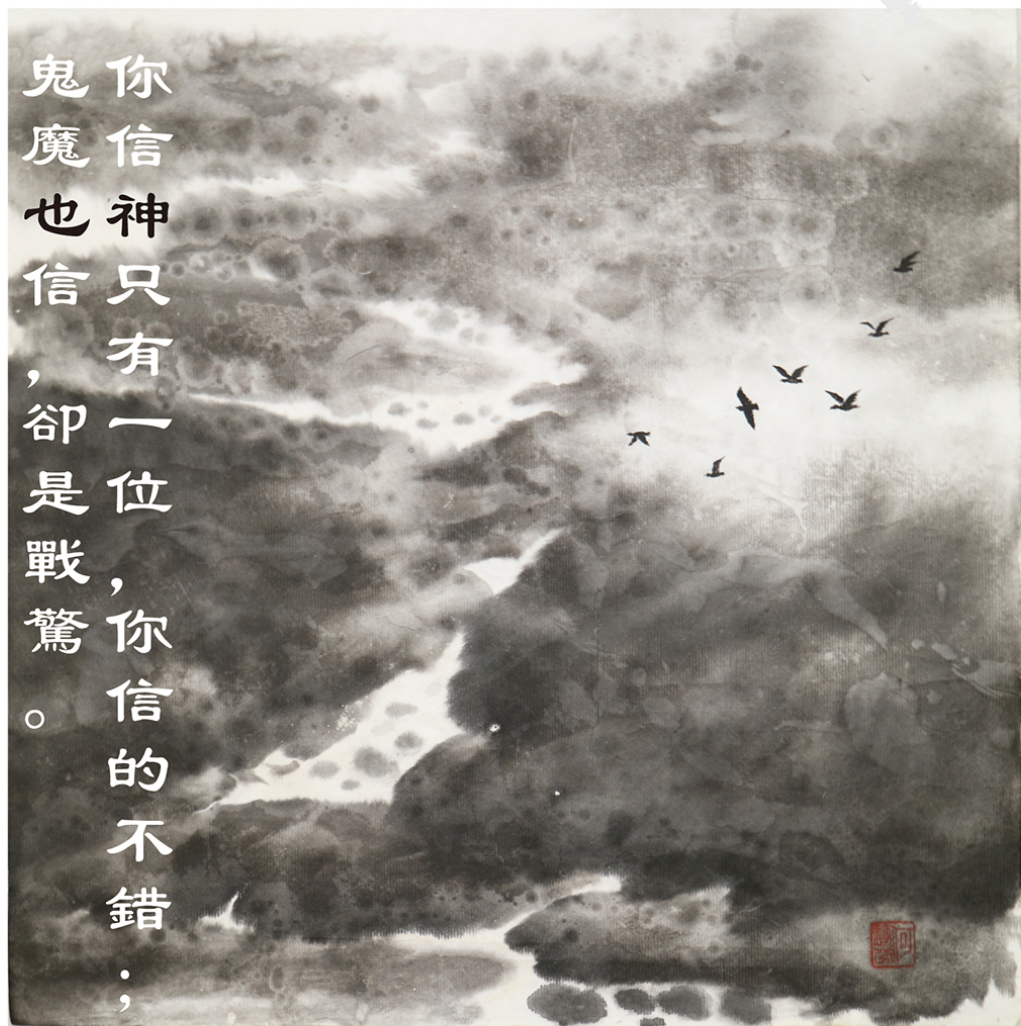 你信神只有一位，你信的不錯；
鬼魔也信，卻是戰驚。